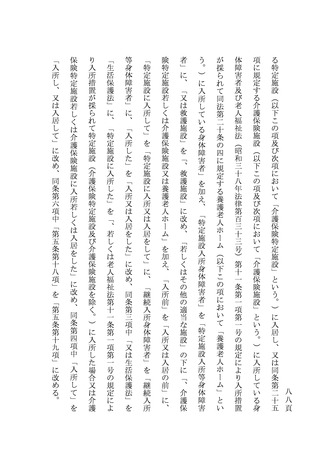 八八頁
る特定施設（以下この項及び次項において「介護保険特定施設」という。）に入居し、又は同条第二十五
項に規定する介護保険施設（以下この項及び次項において「介護保険施設」という。）に入所している身
体障害者及び老人福祉法（昭和三十八年法律第百三十三号）第十一条第一項第一号の規定により入所措置
が採られて同法第二十条の四に規定する養護老人ホーム（以下この項において「養護老人ホーム」とい
う。）に入所している身体障害者」を加え、「特定施設入所身体障害者」を「特定施設入所等身体障害
者」に、「又は救護施設」を「、救護施設」に改め、「若しくはその他の適当な施設」の下に「、介護保
険特定施設若しくは介護保険施設又は養護老人ホーム」を加え、「入所前」を「入所又は入居の前」に、
「特定施設に入所して」を「特定施設に入所又は入居をして」に、「継続入所身体障害者」を「継続入所
等身体障害者」に、「入所した」を「入所又は入居をした」に改め、同条第三項中「又は生活保護法」を
「生活保護法」に、「特定施設に入所した」を「、若しくは老人福祉法第十一条第一項第一号の規定によ
り入所措置が採られて特定施設（介護保険特定施設及び介護保険施設を除く。）に入所した場合又は介護
保険特定施設若しくは介護保険施設に入所若しくは入居をした」に改め、同条第四項中「入所して」を
「入所し、又は入居して」に改め、同条第六項中「第五条第十八項」を「第五条第十九項」に改める。